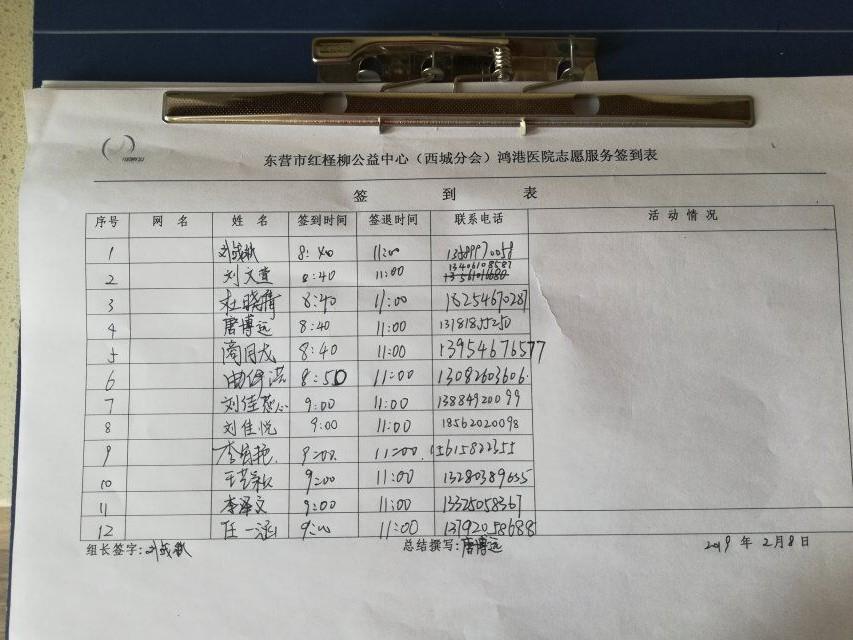 东营市红柽柳公益中心（西城分会）鸿港医院志愿服务签到表
签 到 表
序号 网 名 姓 名 签到时间 签退时间 联系电话 活 动 情 况
1 8:40 11:00
2 刘文萱 8:40 11:00
3 杜晓倩 8:40 11:00 18254670287
4 唐博远 8:40 11:00 13781855250
5 8:40 11:00 13954676577
6 8:50 11:00 13082603606
7 刘佳蕊 9:00 11:00 13884920099
8 刘佳悦 9:00 11:00 18562020098
9 9:00 11:00 15615822355
10 9:00 11:00 13280389655
11 李泽文 9:00 11:00 13325058367
12 任一涵 9:00 11:00 13792058688
组长签字: 总结撰写:唐博远 2019 年 2月8日